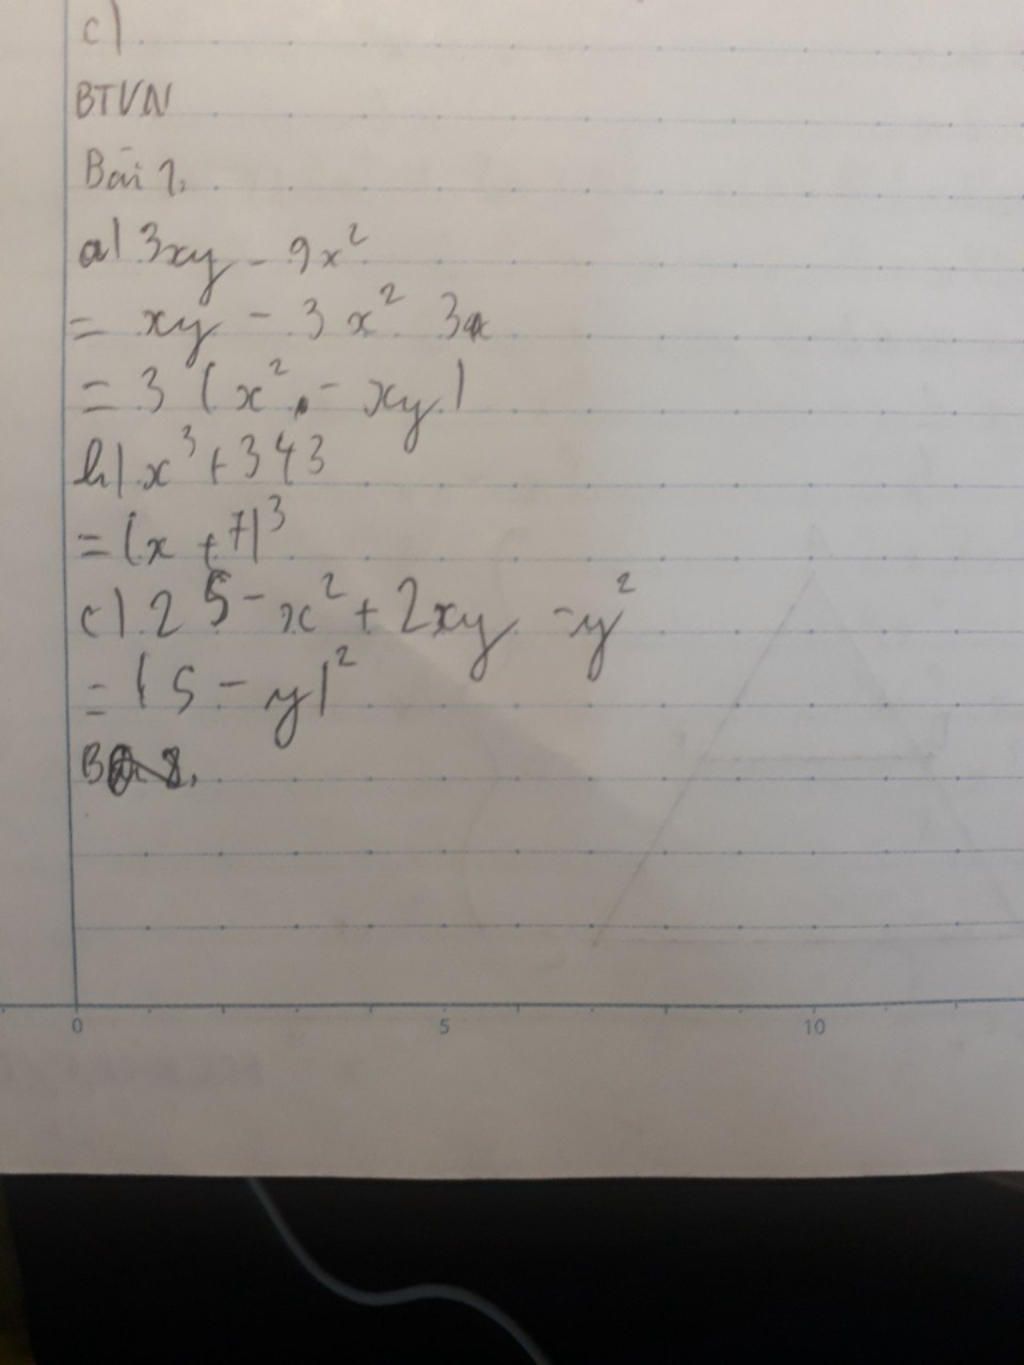 c)
BTVN
Bài 1,
a) 3xy - 9x²
= xy - 3x² 3x
= 3 (x² - xy)
b) x³ + 343
= (x + 7)³
c) 25 - x² + 2xy - y²
= (5 - y)²
0 5 10